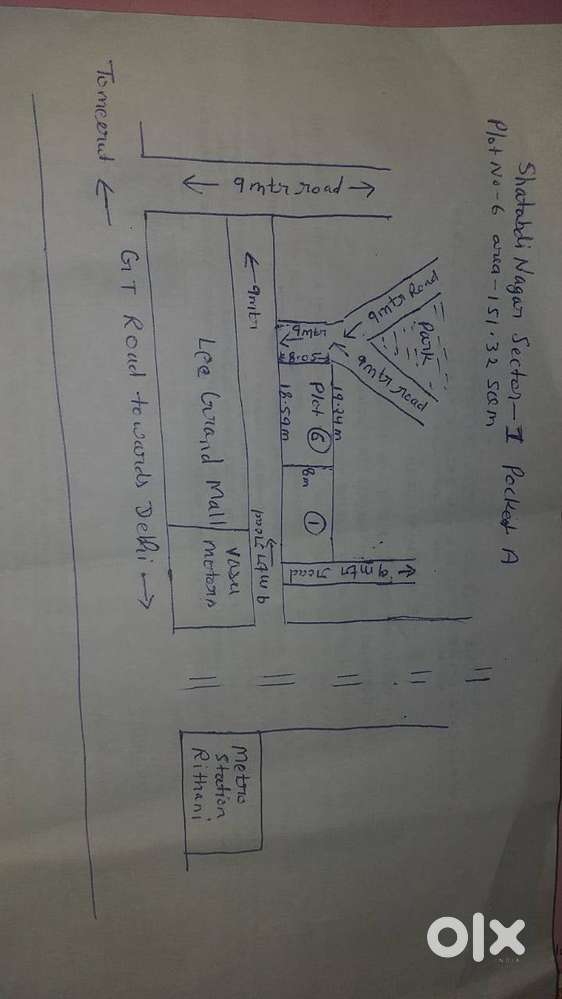 Shatabdi Nagar Sector-I Pocket A
Plot No-6 area-151.32 sqm
Park
9mtr Road
9mtr road
9mtr
9mtr road
19.24m
Plot 6
8m
1
18.59m
9mtr road
9mtr
9mtr road
Lee Grand Mall
Vasu
Motors
GT Road towards Delhi →
To meerut ←
Metro
Station
Rithani
olx
INDIA